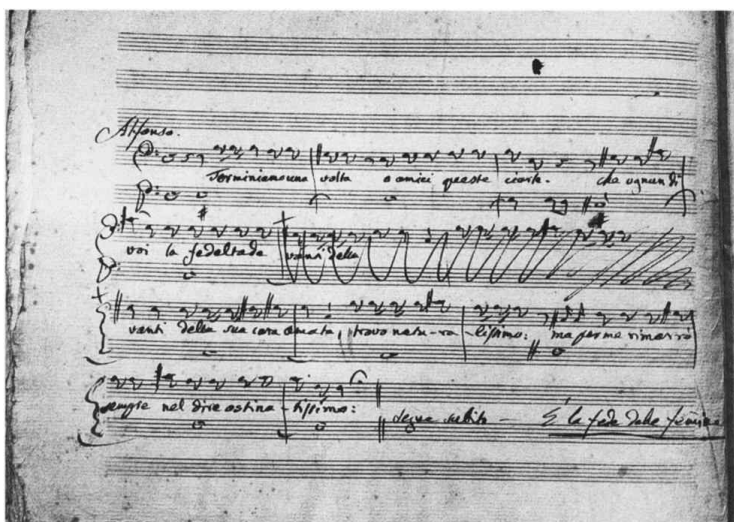 Alfonso.
Terminiamo una volta o amici queste ciarle. che ognun di
voi la fedeltade vanti della
vanti della sua cara amata, trovo natu-ra-lissimo: ma per me rimarrò
sempre nel dire ostina-tissimo: segue subito - È la fede delle femine